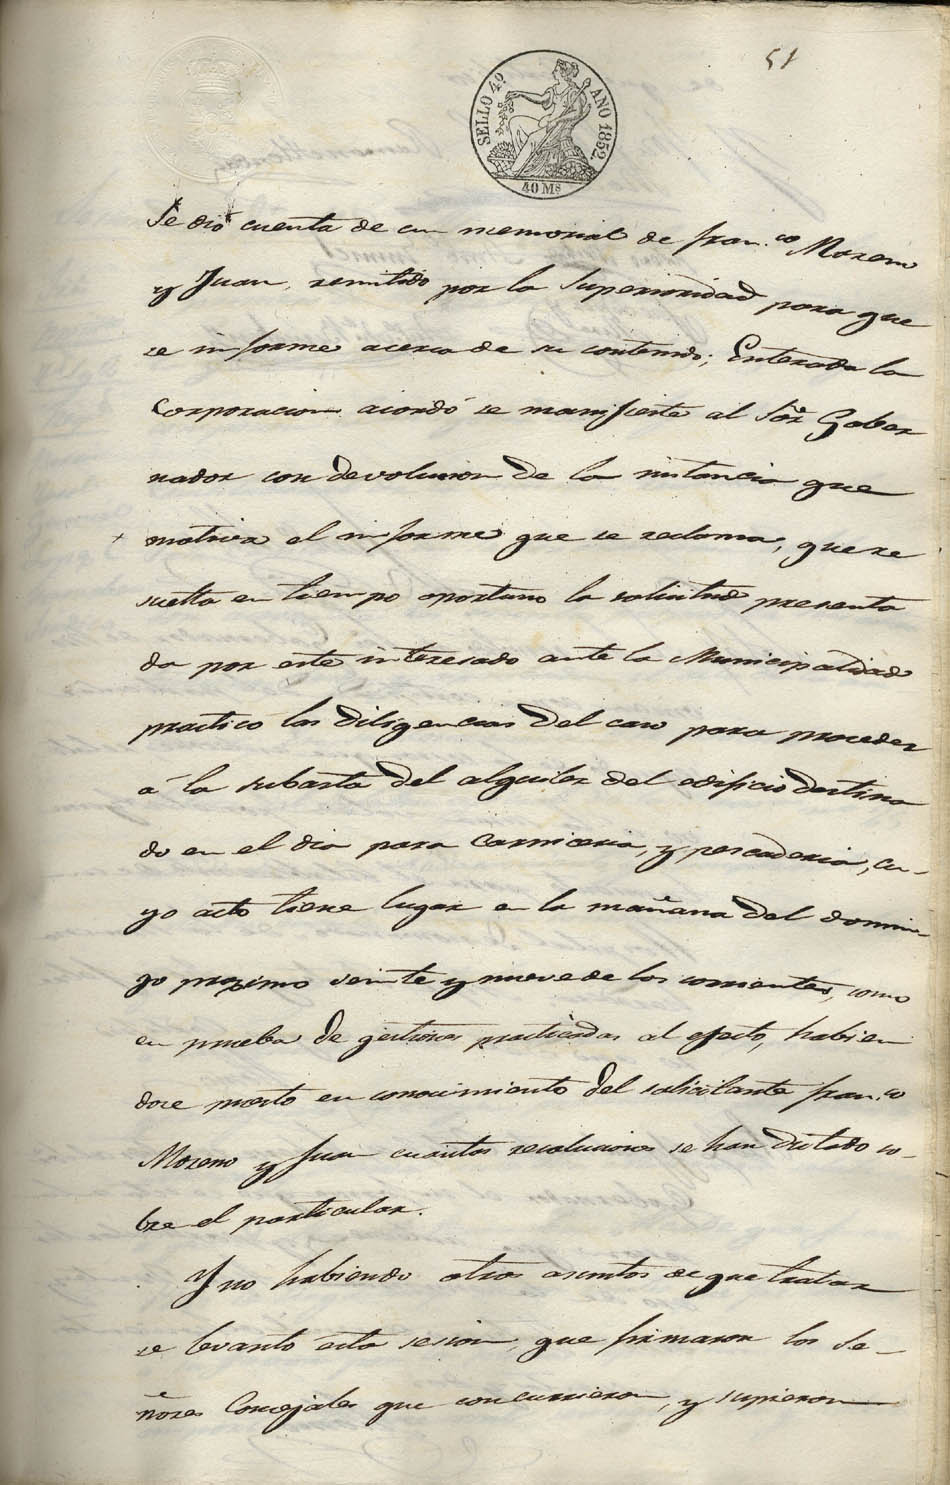 51
SELLO 4º AÑO 1852
40 Ms
Se dio cuenta de un memorial de Fran.co Moreno
y Juan, remitido por la Superioridad para que
se informe acerca de su contenido; Enterada la
Corporacion acordó se manifieste al Sōr Gober
nador con devolucion de la instancia que
motiva el informe que se reclama, que re
suelta en tiempo oportuno la solicitud presenta
da por este interesado ante la Municipalidad
practico las diligencias del caso para proceder
á la subasta del alquiler del edificio destina
do en el dia para Carniceria, y pescaderia, cu-
yo acto tiene lugar en la mañana del domin-
go proximo veinte y nueve de los corrientes, como
en prueba de gestiones practicadas al efecto, habien
dose puesto en conocimiento del solicitante Fran.co
Moreno y Juan cuantas resoluciones se han dictado so-
bre el particular.
Y no habiendo otros asuntos de que tratar
se levantó esta sesion, que firmaron los Se-
ñores Concejales que concurrieron, y supieron